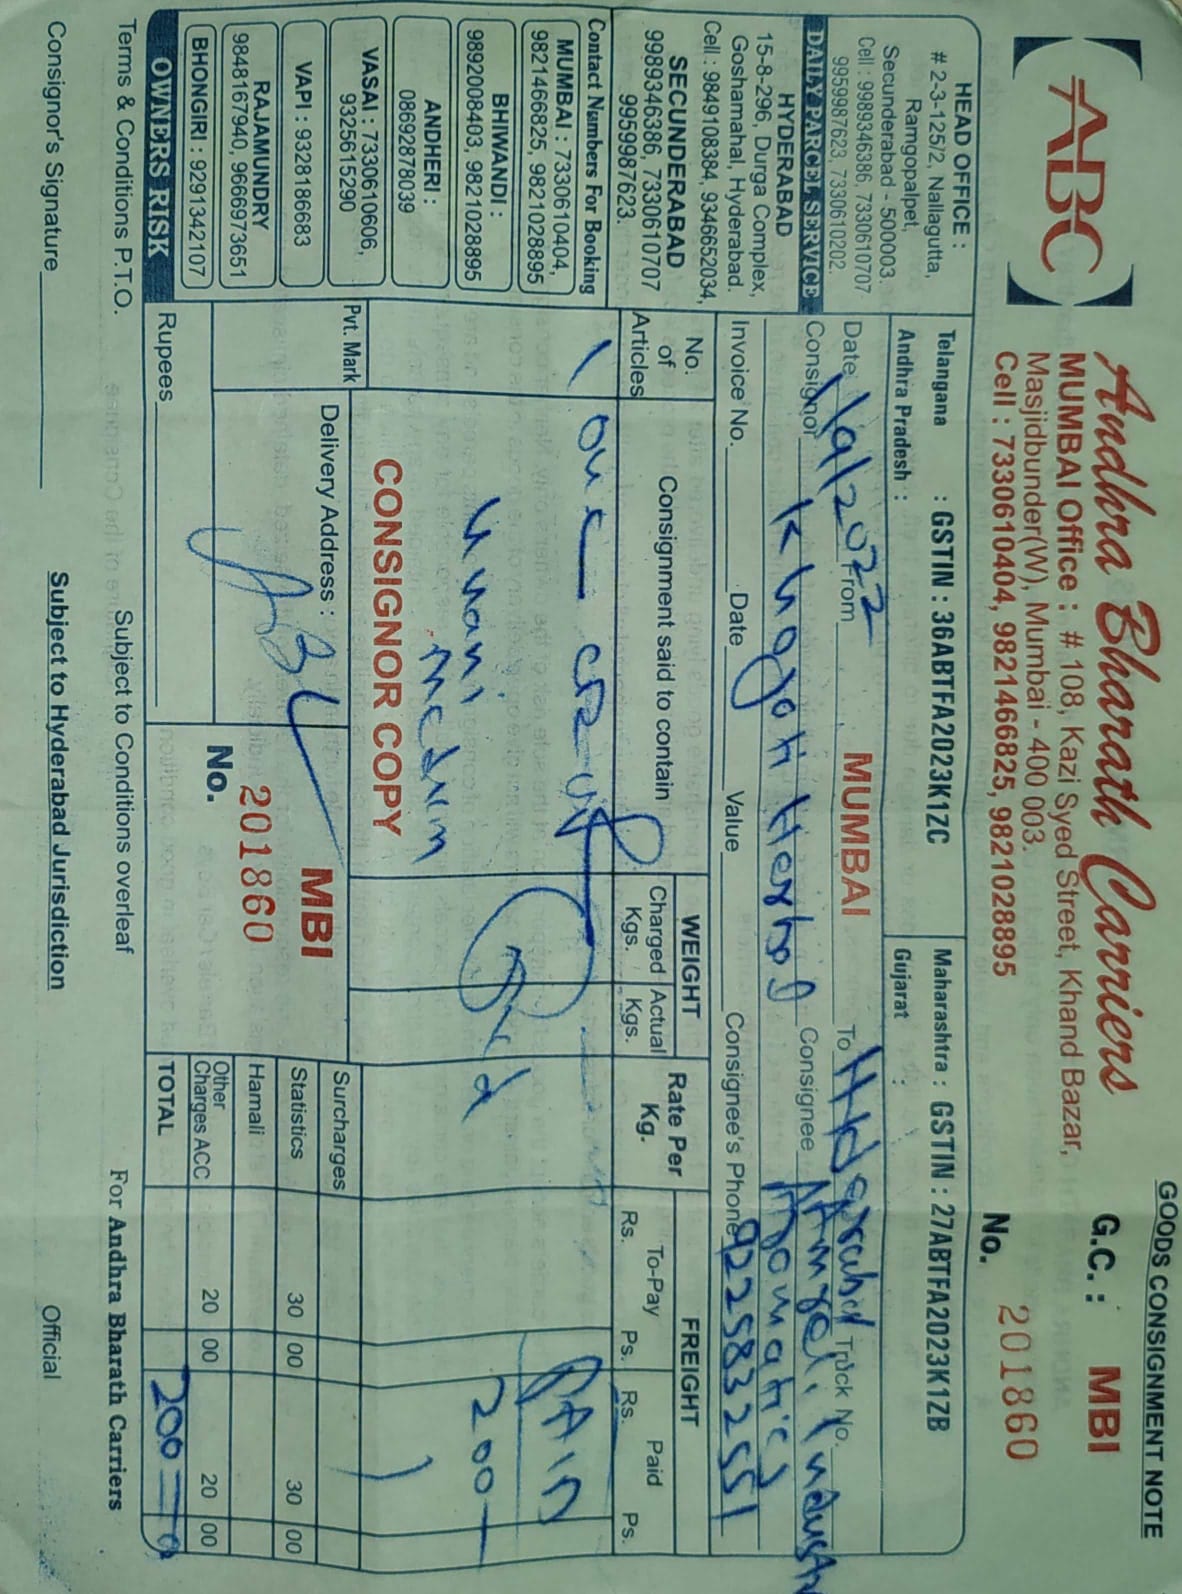 GOODS CONSIGNMENT NOTE
ABC
Andhra Bharath Carriers
MUMBAI Office : # 108, Kazi Syed Street, Khand Bazar,
Masjidbunder(W), Mumbai - 400 003.
Cell : 7330610404, 9821466825, 9821028895
G.C. : MBI
No. 201860
HEAD OFFICE :
# 2-3-125/2, Nallagutta,
Ramgopalpet,
Secunderabad - 500003.
Cell : 9989346386, 7330610707
9959987623, 7330610202.
DAILY PARCEL SERVICE
HYDERABAD
15-8-296, Durga Complex,
Goshamahal, Hyderabad.
Cell : 9849108384, 9346652034,
SECUNDERABAD
9989346386, 7330610707
9959987623.
Contact Numbers For Booking
MUMBAI : 7330610404,
9821466825, 9821028895
BHIWANDI :
9892008403, 9821028895
ANDHERI :
08692878039
VASAI : 7330610606,
9325615290
VAPI : 9328186683
RAJAMUNDRY
9848167940, 9666973651
BHONGIRI : 9291342107
OWNERS RISK
Telangana : GSTIN : 36ABTFA2023K1ZC
Andhra Pradesh :
Maharashtra : GSTIN : 27ABTFA2023K1ZB
Gujarat :
Date 1/9/2022 From MUMBAI To Truck No.
Consignor Herbal Consignee
Invoice No. Date Value Consignee's Phone 9225832551
No. of Articles
Consignment said to contain
WEIGHT
Charged Kgs.
Actual Kgs.
Rate Per Kg.
FREIGHT
To-Pay
Rs. Ps.
Paid
Rs. Ps.
1
PAID
Unani
200
CONSIGNOR COPY
Pvt. Mark
Delivery Address :
MBI
201860
No.
Surcharges
Statistics 30 00 30 00
Hamali
Other Charges ACC 20 00 20 00
TOTAL 200
Rupees
Terms & Conditions P.T.O.
Subject to Conditions overleaf
For Andhra Bharath Carriers
Consignor's Signature
Subject to Hyderabad Jurisdiction
Official